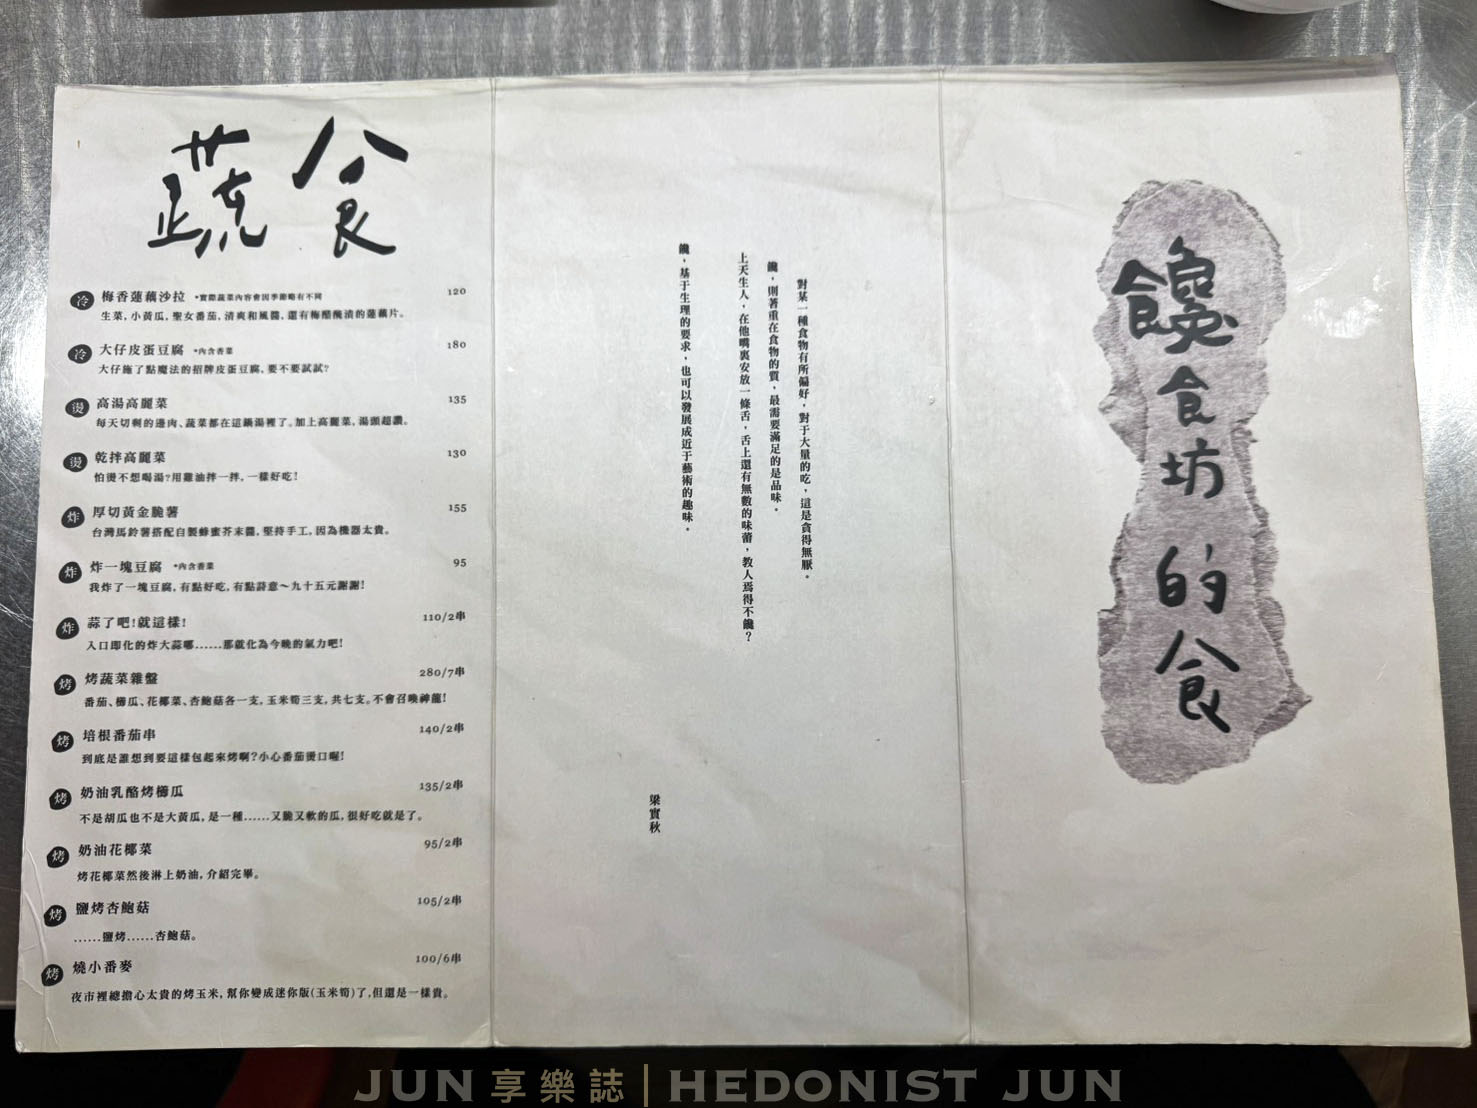 蔬食
冷 梅香蓮藕沙拉 *實際蔬菜內容會因季節略有不同 120
生菜,小黃瓜,聖女番茄,清爽和風醬,還有梅醋醃漬的蓮藕片。
冷 大仔皮蛋豆腐 *內含香菜 180
大仔施了點魔法的招牌皮蛋豆腐,要不要試試?
燙 高湯高麗菜 135
每天切剩的邊肉、蔬菜都在這鍋湯裡了。加上高麗菜,湯頭超讚。
燙 乾拌高麗菜 130
怕燙不想喝湯?用雞油拌一拌,一樣好吃!
炸 厚切黃金脆薯 155
台灣馬鈴薯搭配自製蜂蜜芥末醬,堅持手工,因為機器太貴。
炸 炸一塊豆腐 *內含香菜 95
我炸了一塊豆腐,有點好吃,有點詩意~九十五元謝謝!
炸 蒜了吧!就這樣! 110/2串
入口即化的炸大蒜哪......那就化為今晚的氣力吧!
烤 烤蔬菜雜盤 280/7串
番茄、櫛瓜、花椰菜、杏鮑菇各一支,玉米筍三支,共七支。不會召喚神龍!
烤 培根番茄串 140/2串
到底是誰想到要這樣包起來烤啊?小心番茄燙口喔!
烤 奶油乳酪烤櫛瓜 135/2串
不是胡瓜也不是大黃瓜,是一種......又脆又軟的瓜,很好吃就是了。
烤 奶油花椰菜 95/2串
烤花椰菜然後淋上奶油,介紹完畢。
烤 鹽烤杏鮑菇 105/2串
......鹽烤......杏鮑菇。
烤 燒小番麥 100/6串
夜市裡總擔心太貴的烤玉米,幫你變成迷你版(玉米筍)了,但還是一樣貴。
對某一種食物有所偏好,對于大量的吃,這是貪得無厭。
饞,則著重在食物的質,最需要滿足的是品味。
上天生人,在他嘴裏安放一條舌,舌上還有無數的味蕾,教人焉得不饞?
饞,基于生理的要求,也可以發展成近于藝術的趣味。
梁實秋
饞食坊的食
JUN享樂誌|HEDONIST JUN